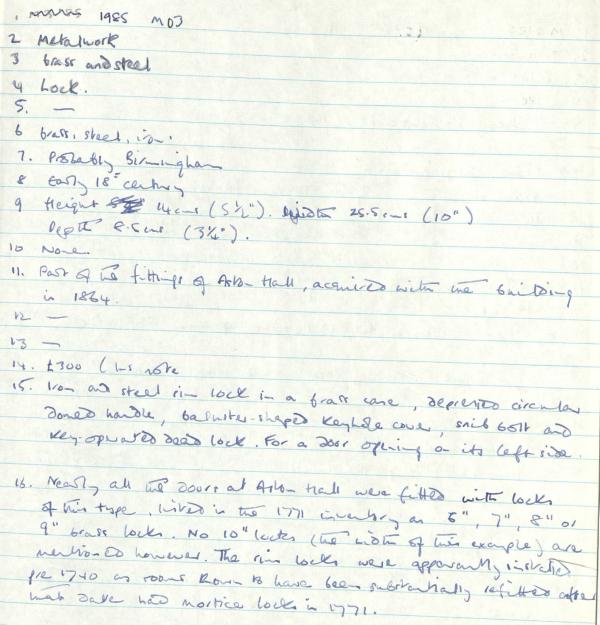 1985 M03
2 Metalwork
3 brass and steel
4 Lock.
5. —
6 brass, steel, iron.
7. Probably Birmingham
8 Early 18th century
9 Height 14 cms (5½"). Width 25.5 cms (10")
Depth 8.5 cms (3¼").
10 None.
11. Part of the fittings of Aston Hall, acquired with the building
in 1864.
12 —
13 —
14. £300 ( note
15. Iron and steel rim lock in a brass case, depressed circular
domed handle, baluster-shaped keyhole cover, snib bolt and
key-operated dead lock. For a door opening on its left side.
16. Nearly all the doors at Aston Hall were fitted with locks
of this type, listed in the 1771 inventory as 6", 7", 8" or
9" brass locks. No 10" locks (the width of this example) are
mentioned however. The rim locks were apparently installed
pre 1740 as rooms known to have been substantially refitted after
that date had mortice locks in 1771.